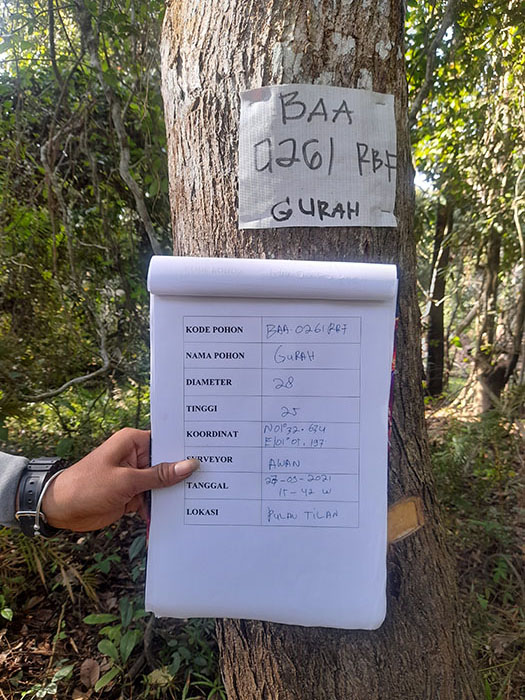 BAA
0261 RBF
GURAH
KODE POHON BAA.0261RBF
NAMA POHON GURAH
DIAMETER 28
TINGGI 25
KOORDINAT N01°32.634
E101°01.197
SURVEYOR AWAN
TANGGAL 27-03-2021
15-42 W
LOKASI PULAU TILAN